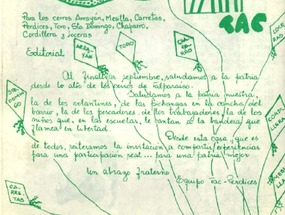 Para los cerros Arrayán, Mesilla, Carretas,
Perdices, Toro, Sto Domingo, Chaparro,
Cordillera y Loceras
TAC
Editorial
ARRA
YAN
TORO
CHA
PA
RRO
STO
DOMIN
GO
Al finalizar septiembre, saludamos a la patria
desde lo alto de los cerros de Valparaíso.
Saludamos a la patria nuestra,
la de los volantines, de las pichangas en la cancha del
barrio, la de los pescadores, de los trabajadores, la de los
niños que, en las escuelas, le cantan a la bandera que
flamea en libertad.
Desde esta casa, que es
de todos, reiteramos la invitación a compartir experiencias
para una participación real... para una patria mejor
Un abrazo fraterno
Equipo Tac-Perdices
CA
RRE
TAS